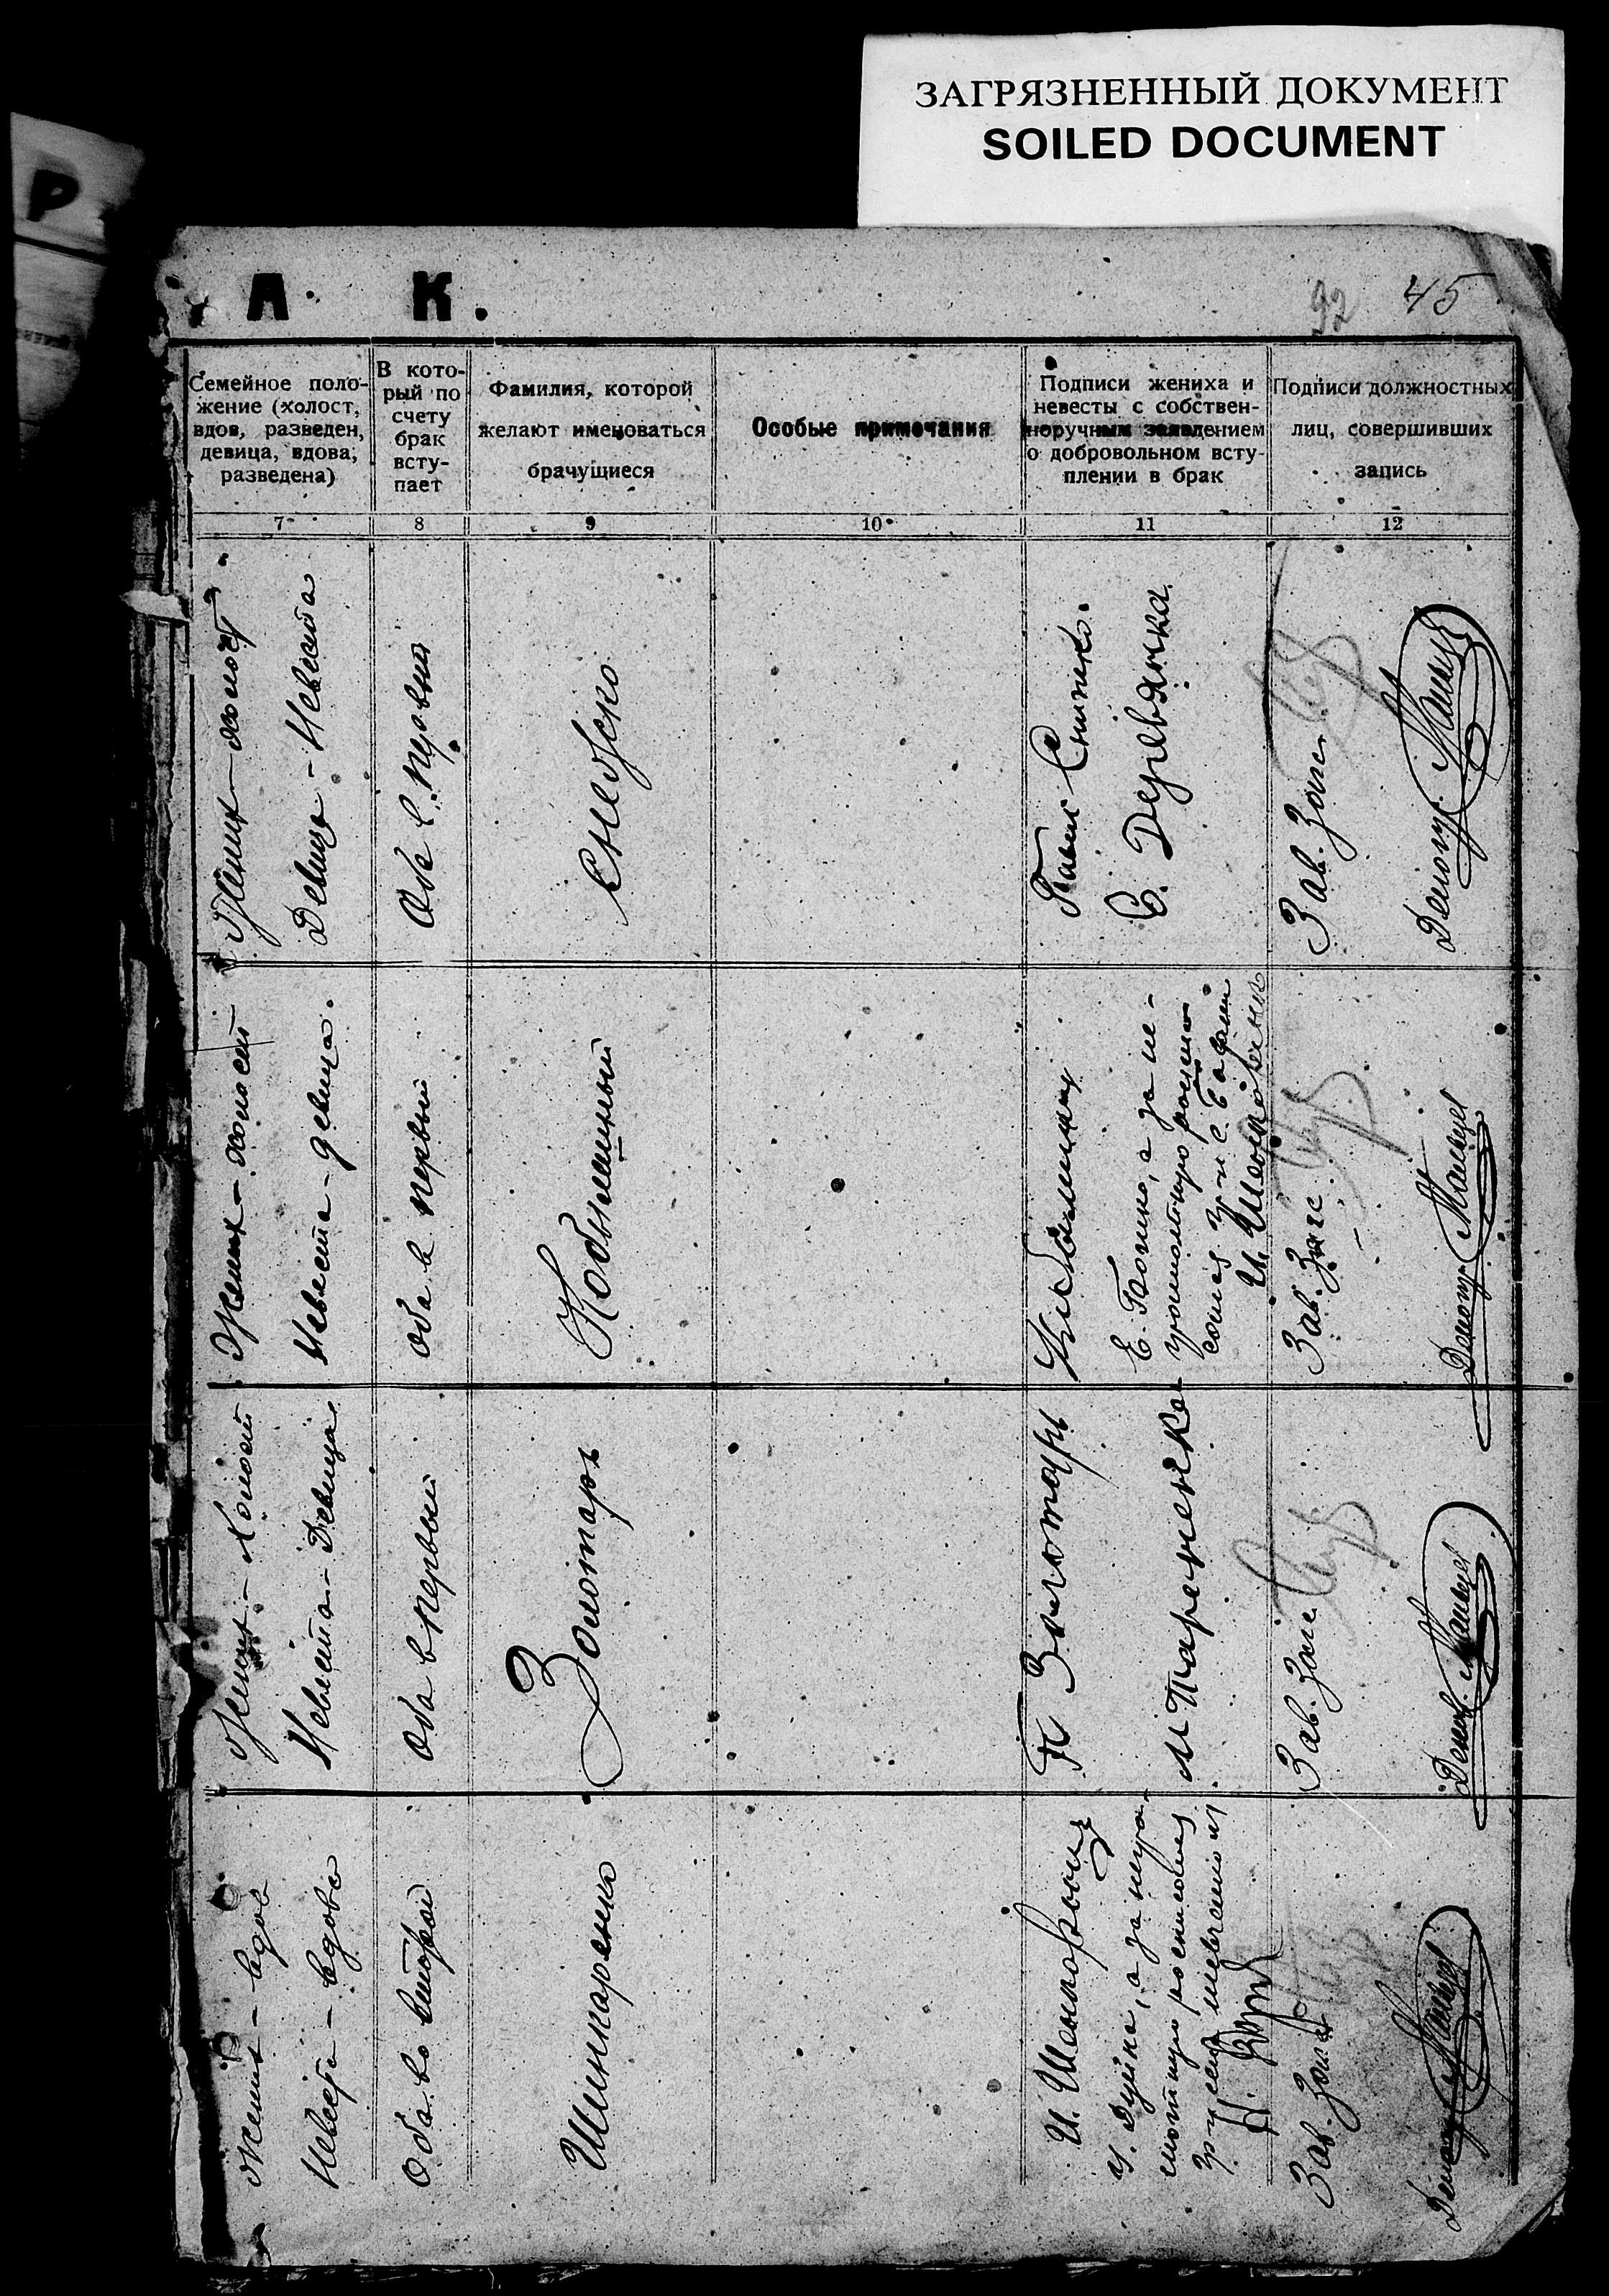 ЗАГРЯЗНЕННЫЙ ДОКУМЕНТ
SOILED DOCUMENT
Р
А К.
92 45
Семейное поло-
жение (холост,
вдов, разведен,
девица, вдова,
разведена)
В кото-
рый по
счету
брак
всту-
пает
Фамилия, которой
желают именоваться
брачущиеся
Особые примечания
Подписи жениха и
невесты с собствен-
норучным заявлением
о добровольном всту-
плении в брак
Подписи должностных
лиц, совершивших
запись
7 8 9 10 11 12
Жених - холост
Девица - Невеста
Оба в первый
Павел
Е. Деревянка
Зав. Загс
Делопр.
Жених - холост
Невеста - девица.
Оба в первый
Кобылашный
Е. Бойко, а за не-
грамотную
Зав. Загс
Делопр.
Жених - Холост
Невеста - Девица
Оба в первый
Золотарь
П Золотарь
М Тараненко
Зав. Загс
Делопр.
Жених - вдов
Невеста - вдова
Оба во второй
Шинкаренко
а за негра-
мотную
Зав. Загс
Делопр.